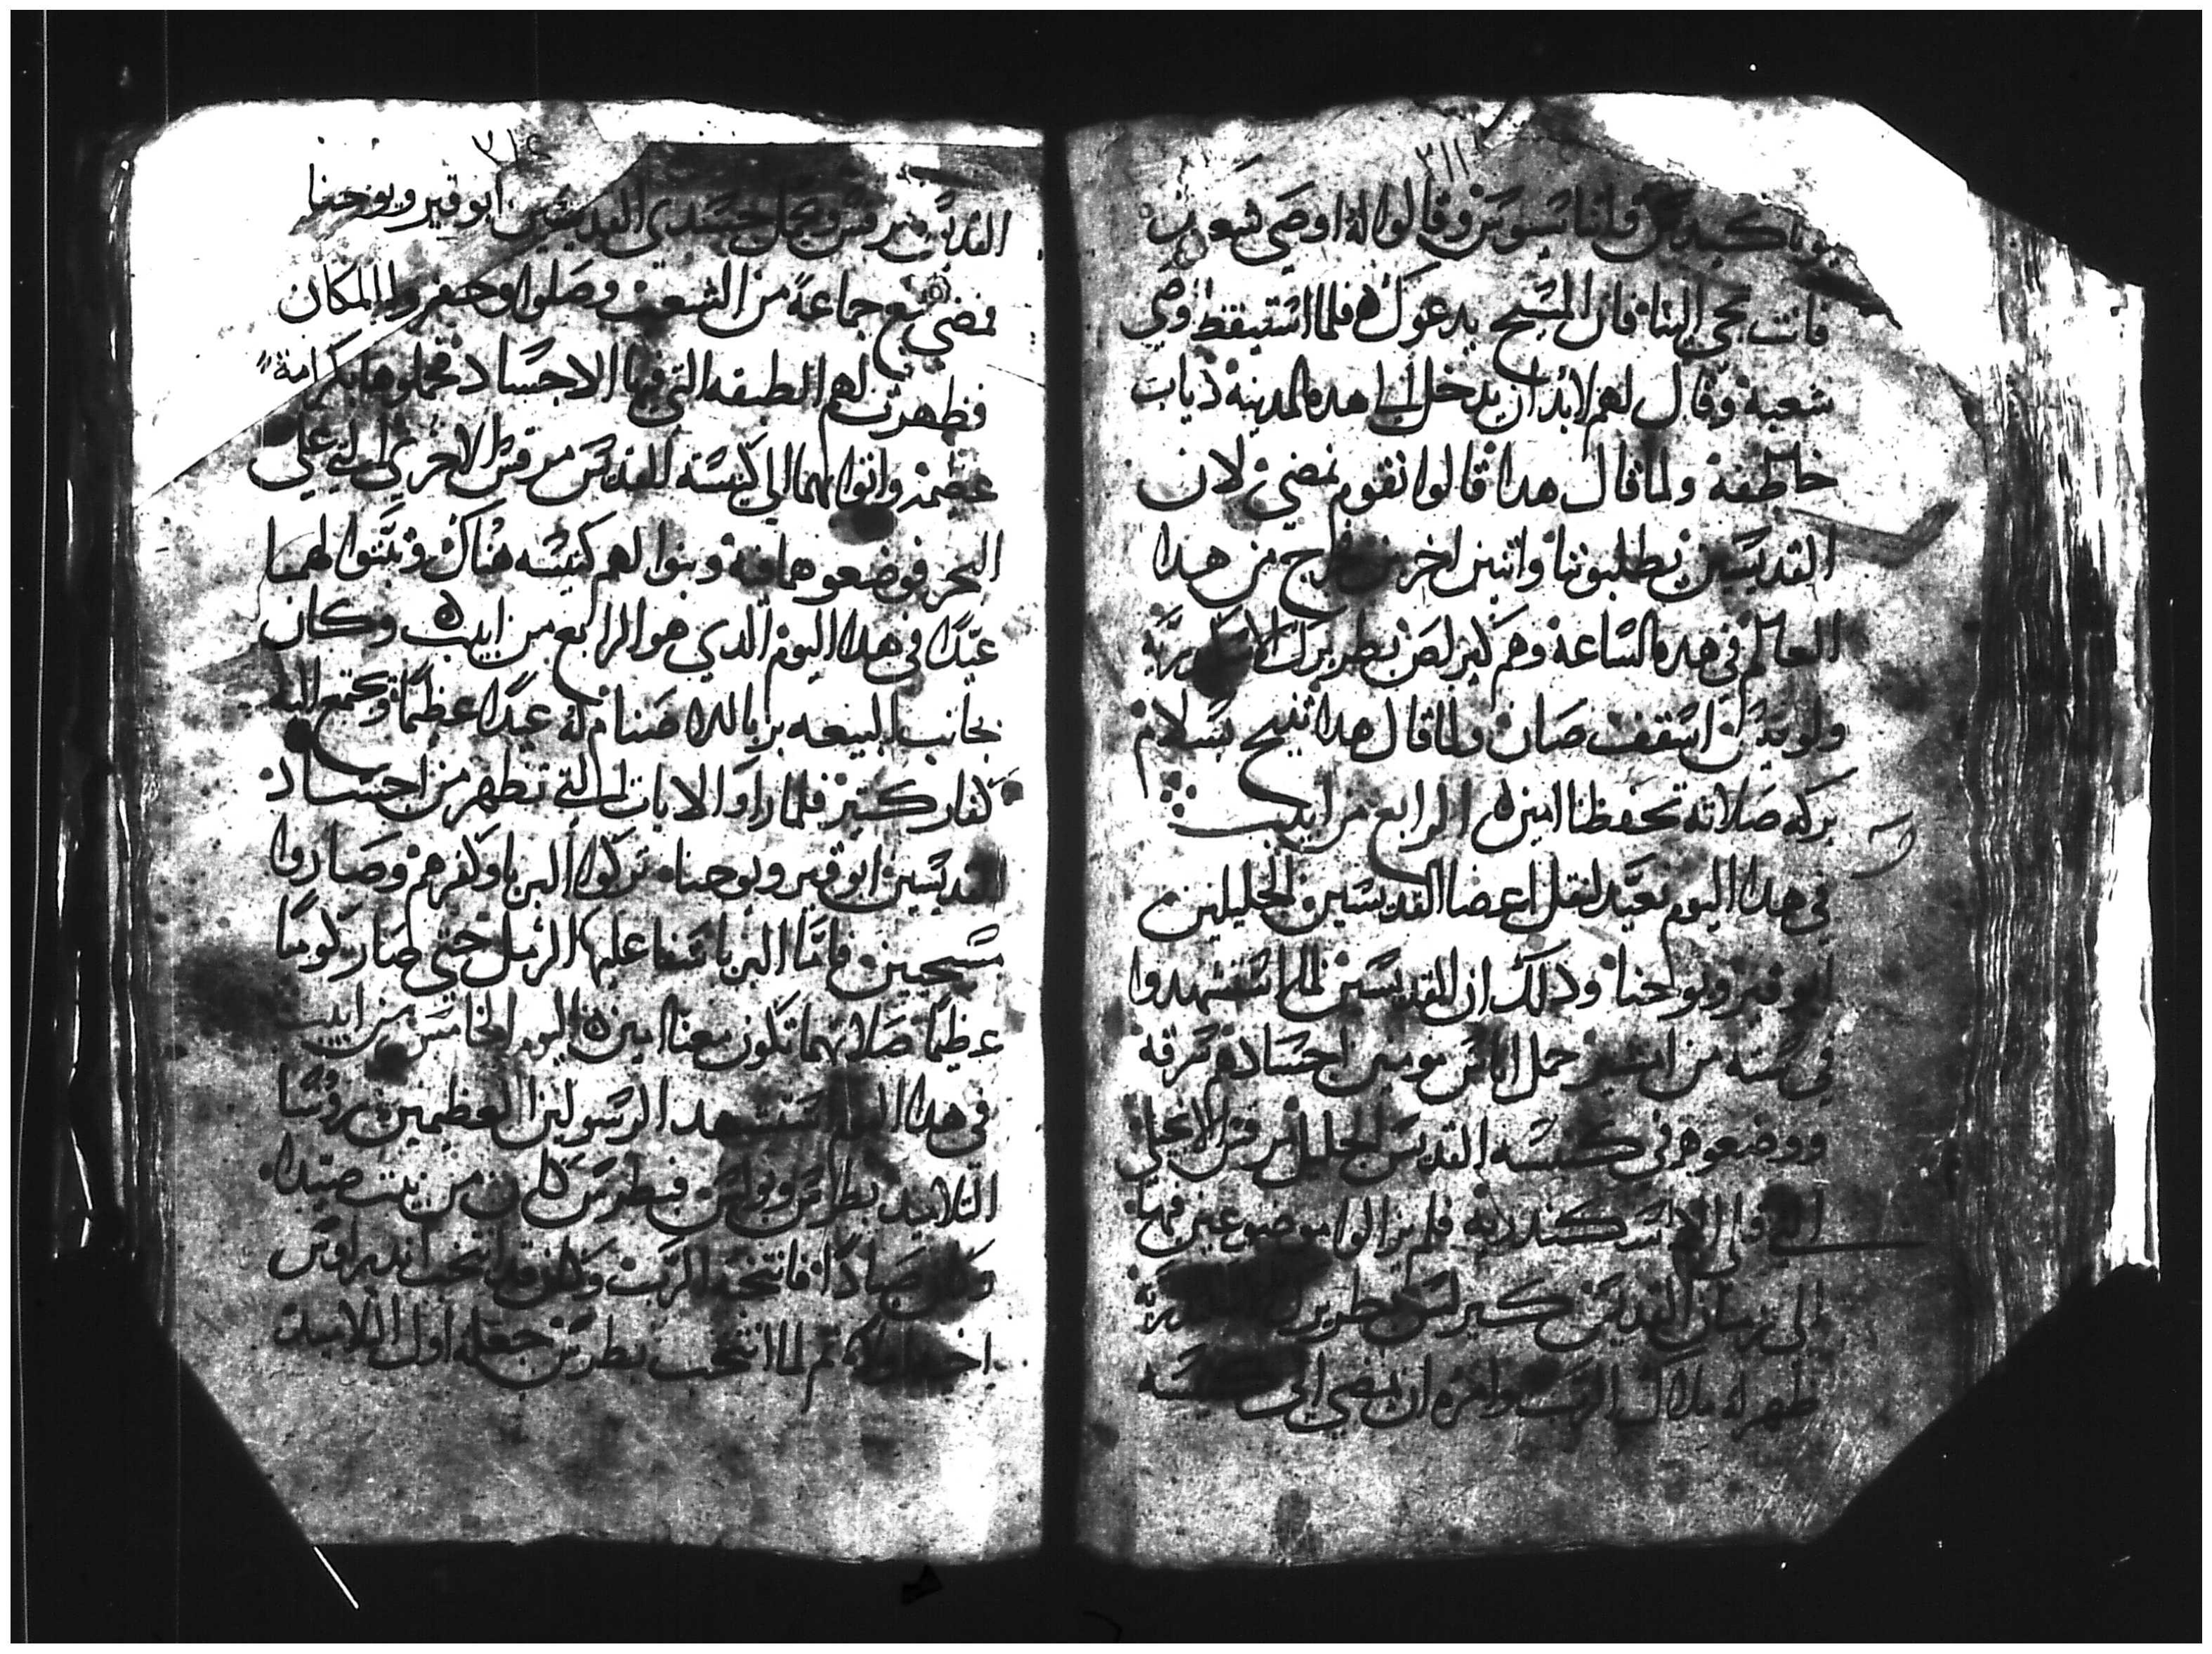 ٣١١
وقالوا له اوصي شعبك
فانت تجي الينا فان المسيح يدعوك ه فلما استيقظ اوصي
شعبه وقال لهم لابد ان يدخل الي هده المدينه دياب
خاطفه ولما قال هدا قالوا نقوم نمضي لان
القديسين يطلبوننا واتنين اخرين خارج من هدا
العالم في هده الساعه وهم كيرلص بطريرك الاسكندريه
اسقف صان ولما قال هدا تنيح بسلام
بركه صلاته تحفظنا امين ه الرابع من ابيب
في هدا اليوم نعيد لنقل اعضا القديسين الجليلين
ابوقير ويوحنا ودلك ان القديسين لما استشهدوا
في سته من امشير حمل اناس مومنين اجسادهم سرقه
ووضعوهم في كنيسه القديس الجليل مرقس الانجيلي
التي الاسكندريه فلم يزالوا موضوعين فيها
الي زمان القديس كيرلس بطريرك الاسكندريه
ظهر له ملاك الرب وامره ان يمضي الي كنيسه
القديس مرقس ويحمل جسدي القديسين ابوقير ويوحنا
فمضي مع جماعة من الشعب وصلوا وحفروا المكان
فظهرت لهم الطبقه التي فيها الاجساد فحملوها بكرامة
عظيمه واتوا بهما الي كنيسه القديس مرقس الاخري التي علي
البحر فوضعوهما فيه وبنوا لهم كنيسه هناك وتبتوا لهما
عيدا في هدا اليوم الدي هو الرابع من ابيب ه وكان
بجانب البيعه بربا للاصنام له عيدا عظيما وتجتمع اليه
كفار كتير فلما راوا الايات التي تظهر من اجساد
القديسين ابوقير ويوحنا تركوا البربا وكفرهم وصاروا
مسيحيين فاما البربا سفا عليها الرمل حتي صار كوما
عظيما صلاتهما تكون معنا امين ه اليوم الخامس من ابيب
في هدا اليوم استشهد الرسولين العظيمين روسا
التلاميد بطرس وبولس فبطرس كان من بيت صيدا
وكان صيادا فانتخبه الرب وكان قد انتخب اندراوس
اخيه اولا تم لما انتخب بطرس جعله اول التلاميد